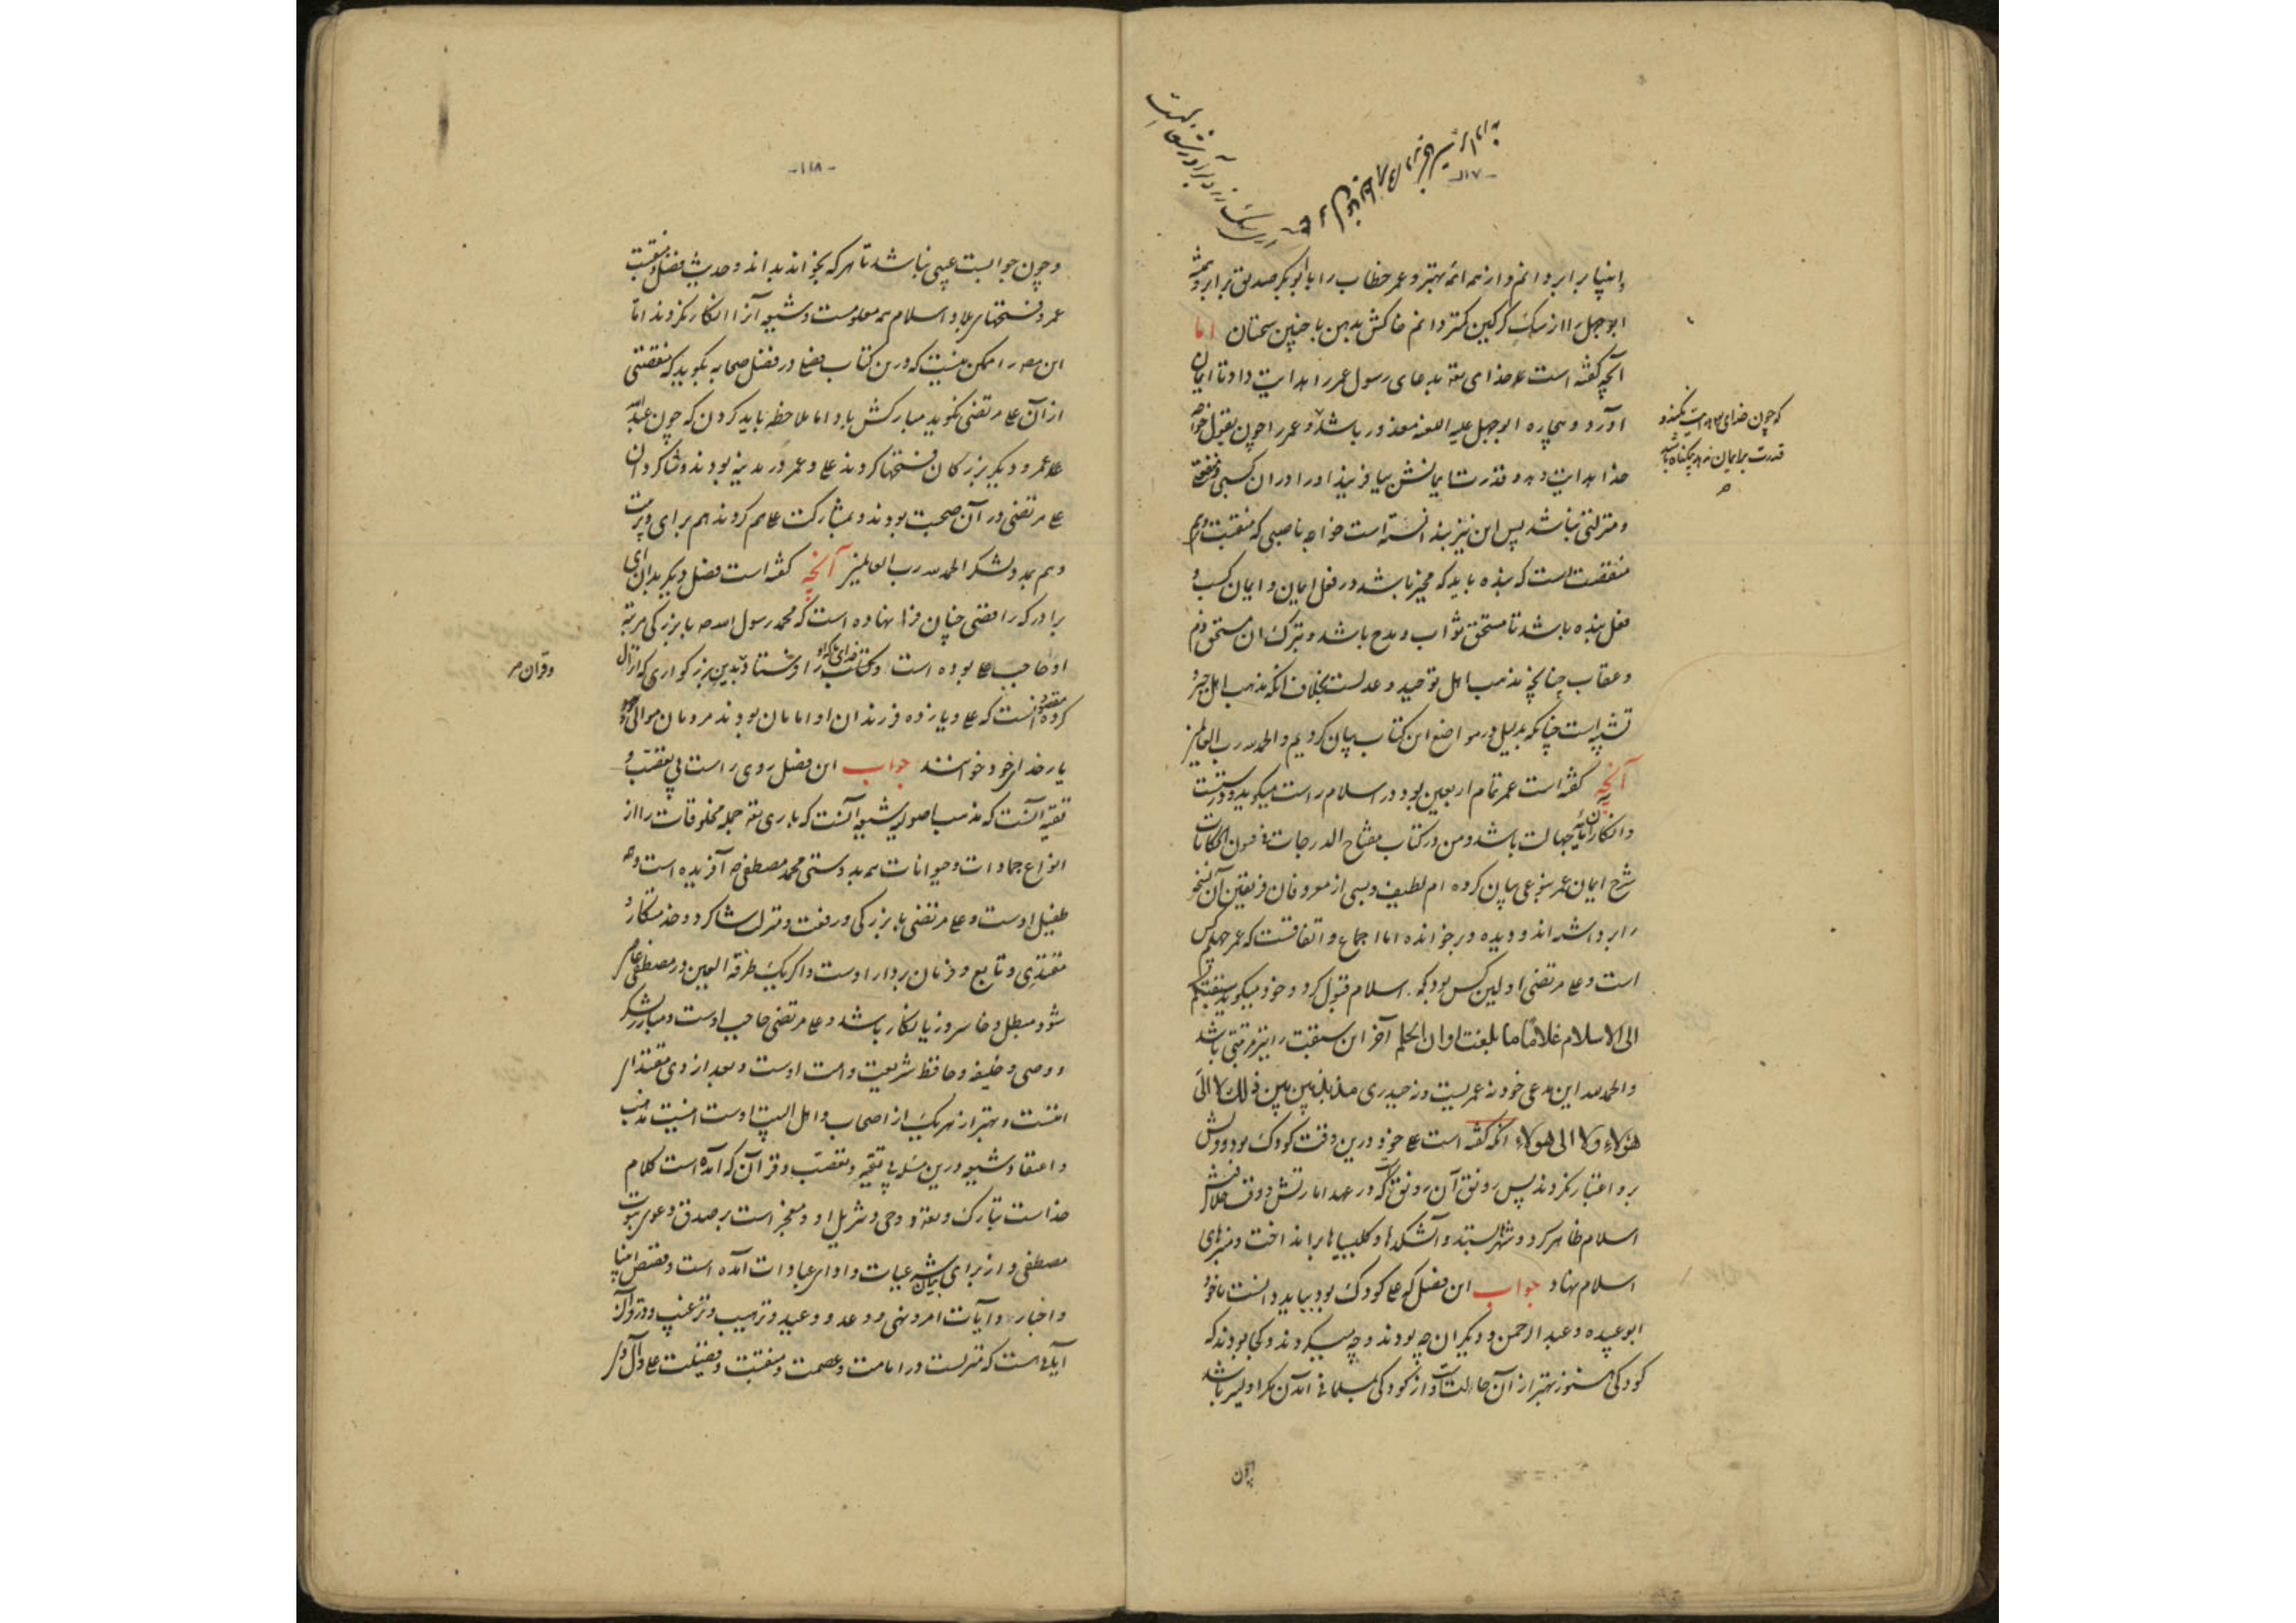 -۱۱۷-
بانبیا برابر دانم و از همه ائمه بهتر و عمر خطاب را با ابوبکر صدیق برابر و
ابوجهل را از سگ گرگین کمتر دانم خاکش بدهن با چنین سخنان اما
آنچه گفته است که خدای تعه بدعای رسول عمر را هدایت داد تا ایمان
آورد و بیچاره ابوجهل علیه اللعنه معذور باشد و عمر را چون بقول خواجه
خدا هدایت دهد و قدرت ایمانش بیافریند او را در ان کسبی و منفعتی
و منزلتی نباشد پس این نیز ندانسته است خواجه ناصبی که منقبت
منقصت است که بنده باید که مخیر باشد در فعل ایمان و ایمان کسب و
فعل بنده باشد تا مستحق ثواب و مدح باشد و بترک ان مستحق ذم
و عقاب چنانچه مذهب اهل توحید و عدلست بخلاف انکه مذهب اهل جبر و
تشبیه است چنانکه بدلیل در مواضع این کتاب بیان کردیم و الحمد لله رب العالمین
آنچه گفته است عمر تمام اربعین بود در اسلام راست میگوید و درستست
و انکار این جهالت باشد و من در کتاب مفتاح الدرجات فی فنون الحکایات
شرح ایمان عمر بنوعی بیان کرده ام لطیف و بسی از معروفان فریقین آن نسخه
را برداشته اند و دیده و برخوانده اما اجماع و اتفاقست که عمر چهلم کس
است و علی مرتضی اولین کس بود که اسلام قبول کرد و خود میگوید سبقتکم
الی الاسلام غلاما ما بلغت اوان الحلم آخر این سبقت را نیز مرتبتی باشد
و الحمد لله این مدعی خود نه عمریست و نه حیدری مذبذبین بین ذلک لا الی
هؤلاء و لا الی هولاء انکه گفته است علی خود درین وقت کودک بود و بودش
برو اعتبار نکردند پس رونق آن رونق که در عهد امارتش و وقت خلافتش
اسلام ظاهر کرد و شهرها بستد و آتشکدها و کلیسیاها برانداخت و منبرهای
اسلام نهاد جواب این فضل که علی کودک بود بباید دانست تا خود
ابوعبیده و عبد الرحمن و دیگران چه بودند و چه میکردند و کجا بودند که
کودکی هنوز بهتر از آن حالتست و از کودکی بمسلمانی آمدن مگر اولیتر باشد
چون
که چون خدای هدایت نکند و
قدرت بر ایمان ندهد چه گناه باشد
-۱۱۸-
و چون جوابست عیبی نباشد تا هر که بخواند بداند و حدیث فضل و منقبت
عمر و فتحهای بلاد اسلام همه معلومست و شیعه آنرا انکار نکردند اما
این مصر را ممکن نیست که درین کتاب فصلی در فضل صحابه بگوید که منقصتی
از آن علی مرتضی نگوید مبارکش باد اما ملاحظه باید کردن که چون عبد الله
عمر و دیگر بزرگان فتحها کردند علی و عمر در مدینه بودند و شاگردان
علی مرتضی در آن صحبت بودند و بمشارکت علی هم کردند هم برای و تربیت
و هم بمدد لشکر الحمد لله رب العالمین آنچه گفته است فضل دیگر بدان ای
برادر که رافضی چنان فرا نهاده است که محمد رسول الله صه با بزرگی مرتبه
او حاجب علی بوده است و کتب خدای که او را فرستاد بدین بزرگواری که انزال
کرده مقصود انست که علی و یازده فرزندان او امامان بودند مردمان موالی
یار خدای خود خوانند جواب این فصل روی راست بی تعصب و
تقیه آنست که مذهب اصولیه شیعه آنست که باری تعه جمله مخلوقات را از
انواع جمادات و حیوانات همه بدوستی محمد مصطفی صه آفریده است و همه
طفیل اوست و علی مرتضی با بزرگی و رفعت و منزلت شاگرد و خدمتکار و
مقتدی و تابع و فرمان بردار اوست و اگر یک طرفة العین در مصطفی عاصی
شود مبطل و خاسر و زیانکار باشد و علی مرتضی حاجب اوست و مبارز لشکر
و وصی و خلیفه و حافظ شریعت و امت اوست و بعد از وی مقتدای
امتست و بهتر از هر یک از اصحاب و اهل البیت اوست اینست مذهب
و اعتقاد شیعه درین مسئله بی تقیه و تعصب و قرآن که آمده است کلام
خداست تبارک و تعه و وحی و تنزیل او و معجز است بر صدق دعوی نبوت
مصطفی و از برای بیان شرعیات و ادای عبادات آمده است و قصص انبیا
و اخبار و آیات امر و نهی و وعد و وعید و ترهیب و ترغیب و در قرآن
آیاتی هست که منزلست در امامت و عصمت و منقبت و فضیلت علی و آل او
و قران